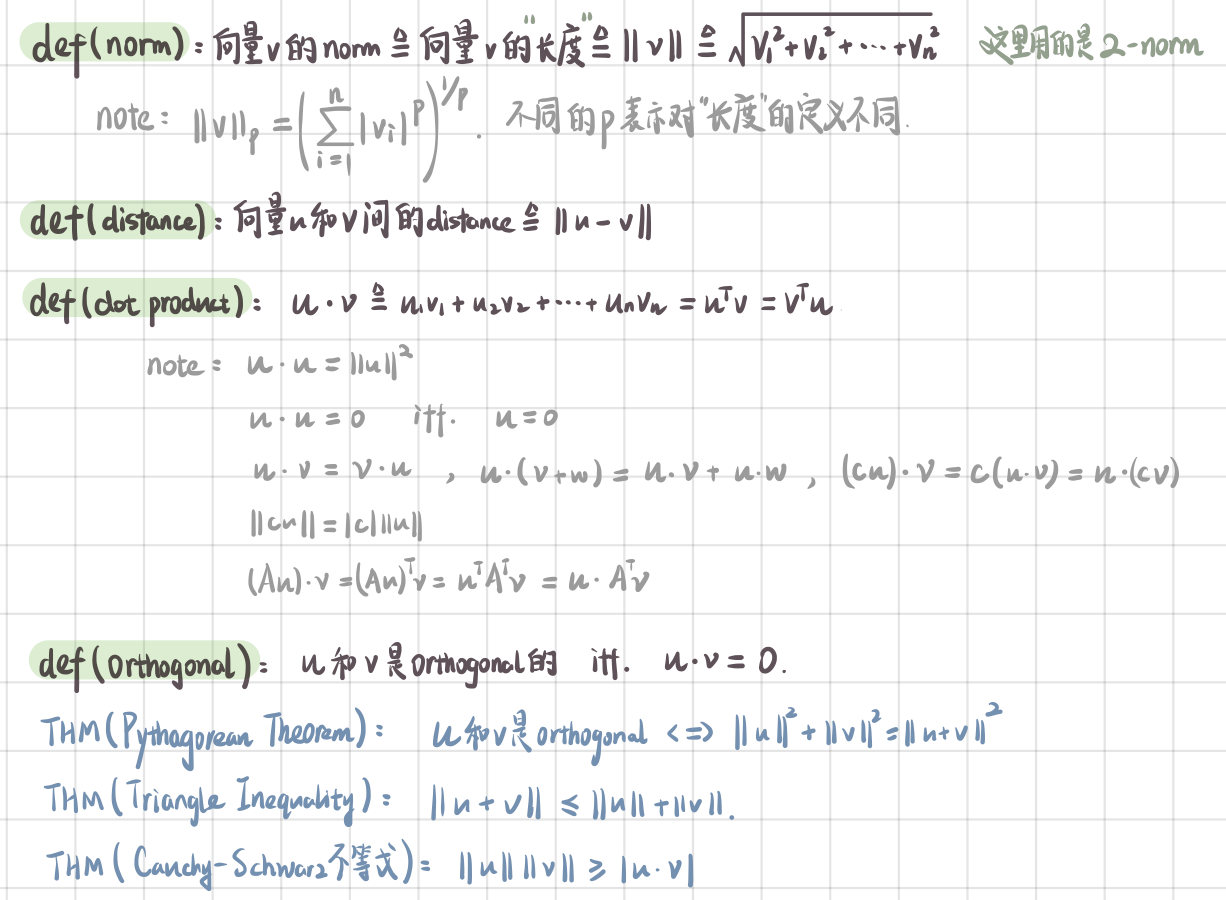 def(norm): 向量v的norm ≜ 向量v的"长度" ≜ ||v|| ≜ √(v₁²+v₂²+⋯+vₙ²) 这里用的是2-norm
note: ||v||ₚ = (∑ᵢ₌₁ⁿ |vᵢ|ᵖ)^(1/p). 不同的p表示对"长度"的定义不同.
def(distance): 向量u和v间的distance ≜ ||u-v||
def(dot product): u·v ≜ u₁v₁+u₂v₂+⋯+uₙvₙ = uᵀv = vᵀu
note: u·u = ||u||²
u·u = 0 iff. u=0
u·v = v·u , u·(v+w) = u·v + u·w , (cu)·v = c(u·v) = u·(cv)
||cu|| = |c| ||u||
(Au)·v = (Au)ᵀv = uᵀAᵀv = u·Aᵀv
def(orthogonal): u和v是orthogonal的 iff. u·v = 0.
THM(Pythagorean Theorem): u和v是orthogonal <=> ||u||²+||v||²=||u+v||²
THM(Triangle Inequality): ||u+v|| ≤ ||u||+||v||.
THM(Cauchy-Schwarz不等式): ||u|| ||v|| ≥ |u·v|